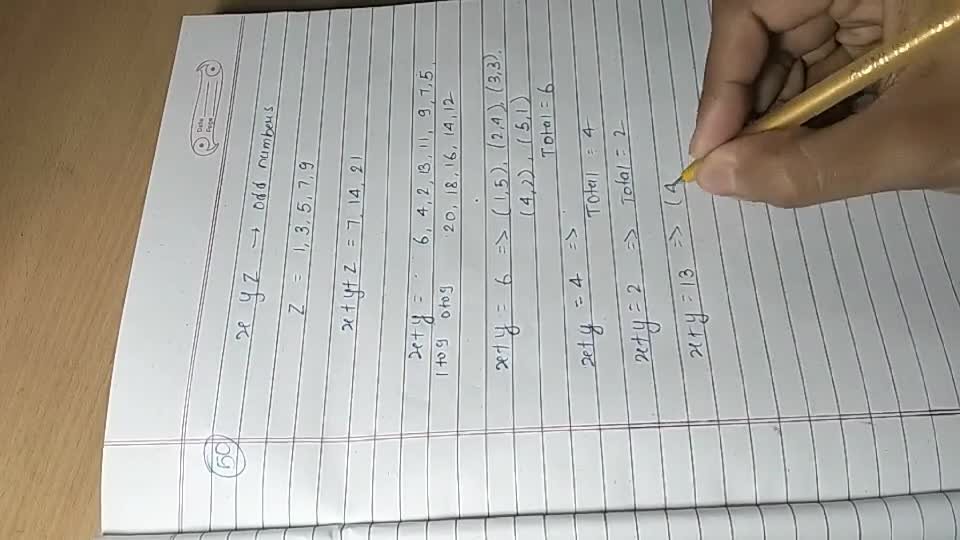 Date
Page
50
x y z → odd numbers
z = 1, 3, 5, 7, 9
x+y+z = 7, 14, 21
x+y = 6, 4, 2, 13, 11, 9, 7, 5,
1 to 9 0 to 9 20, 18, 16, 14, 12
x+y = 6 => (1,5), (2,4), (3,3),
(4,2), (5,1)
Total = 6
x+y = 4 => Total = 4
x+y = 2 => Total = 2
x+y = 13 => (4